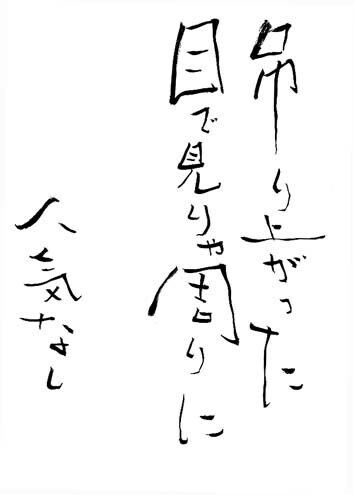 吊り上がった
目で見りゃ周りに
人気なし